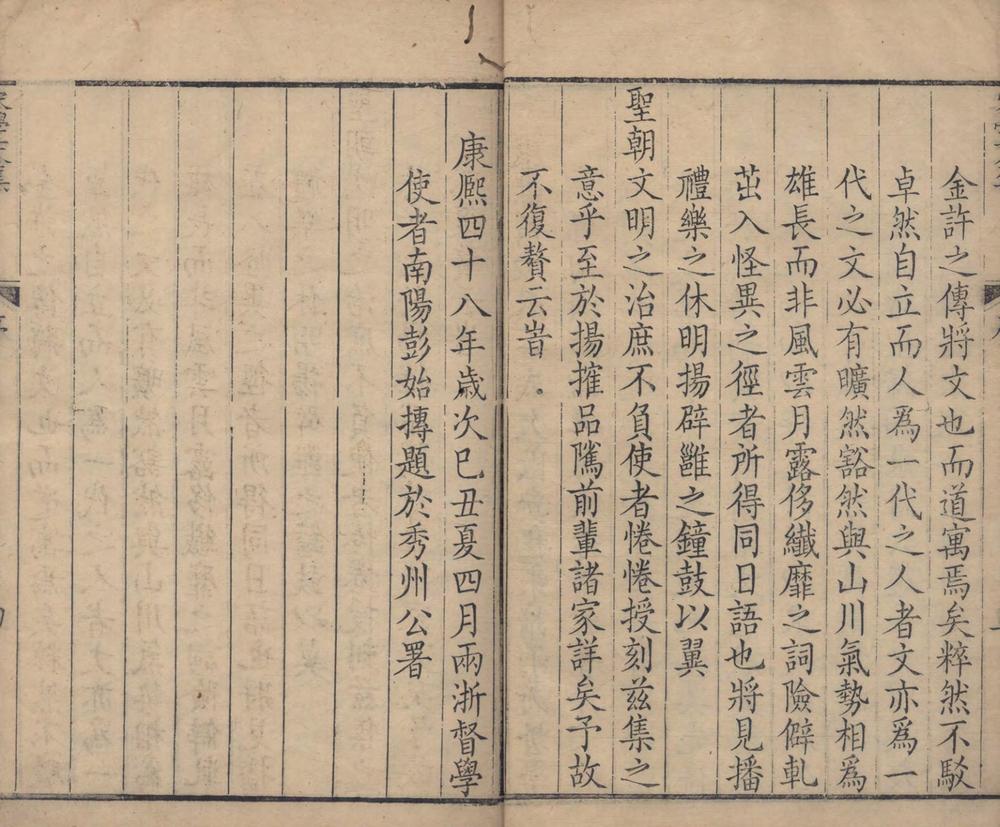 金許之傳將文也而道寓焉矣粹然不駁
卓然自立而人爲一代之人者文亦爲一
代之文必有曠然豁然與山川氣勢相爲
雄長而非風雲月露侈纖靡之詞險僻軋
茁入怪異之徑者所得同日語也將見播
禮樂之休明揚辟雝之鐘鼓以翼
聖朝文明之治庶不負使者惓惓授刻兹集之
意乎至於揚搉品隲前輩諸家詳矣予故
不復贅云旹
康熙四十八年歲次巳丑夏四月兩浙督學
使者南陽彭始摶題於秀州公署